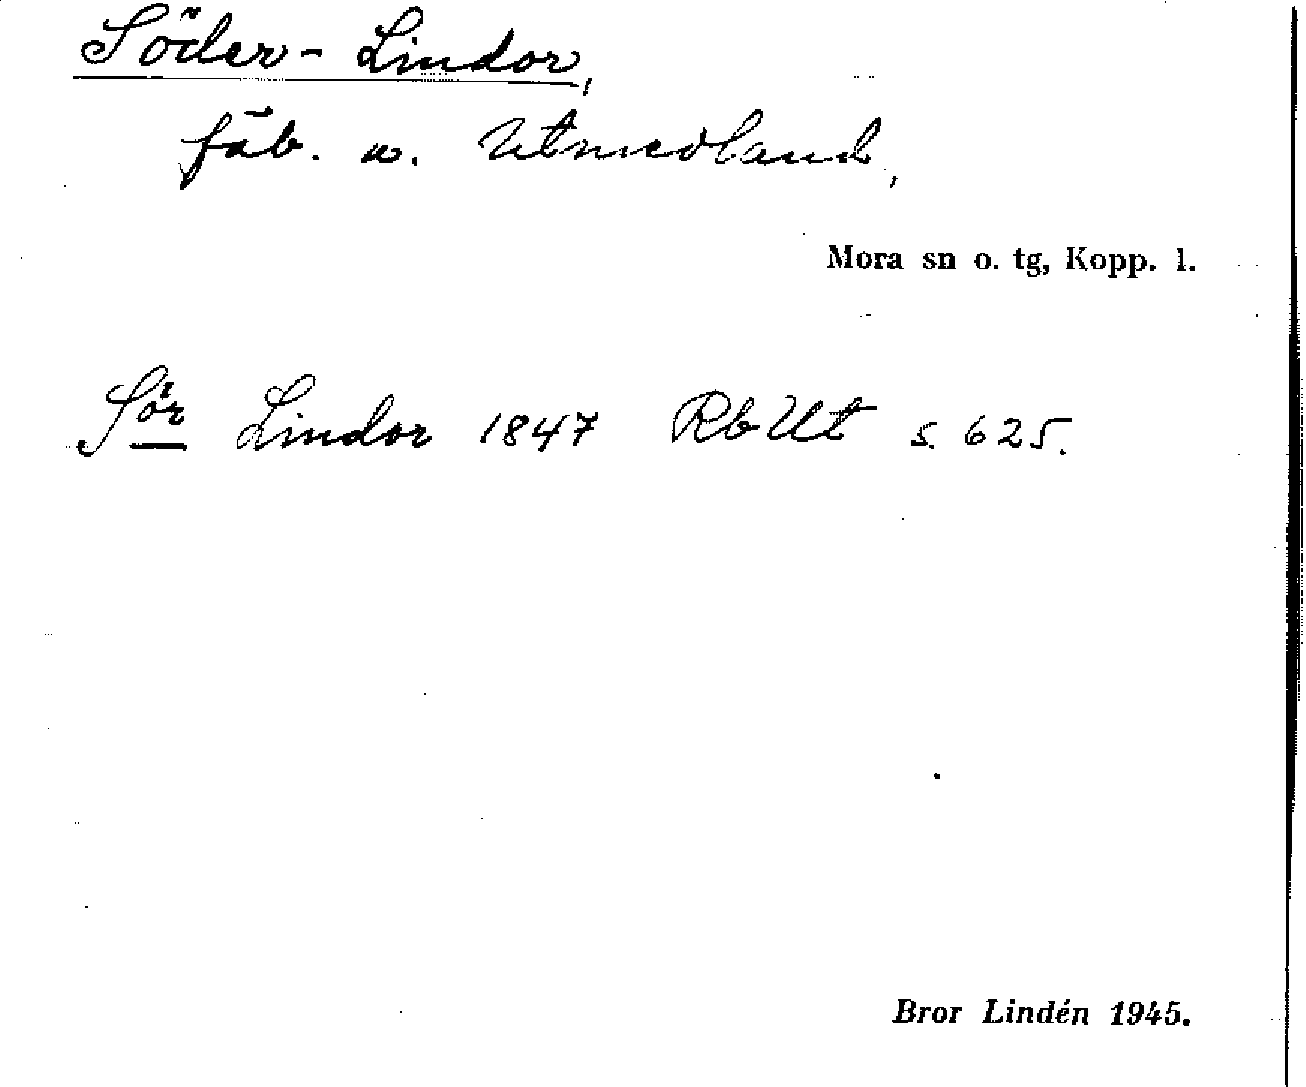 Söder-Lindor,
fäb. w. Utmedland,
Mora sn o. tg, Kopp. l.
Sör Lindor 1847 RbUt s. 625.
Bror Lindén 1945.